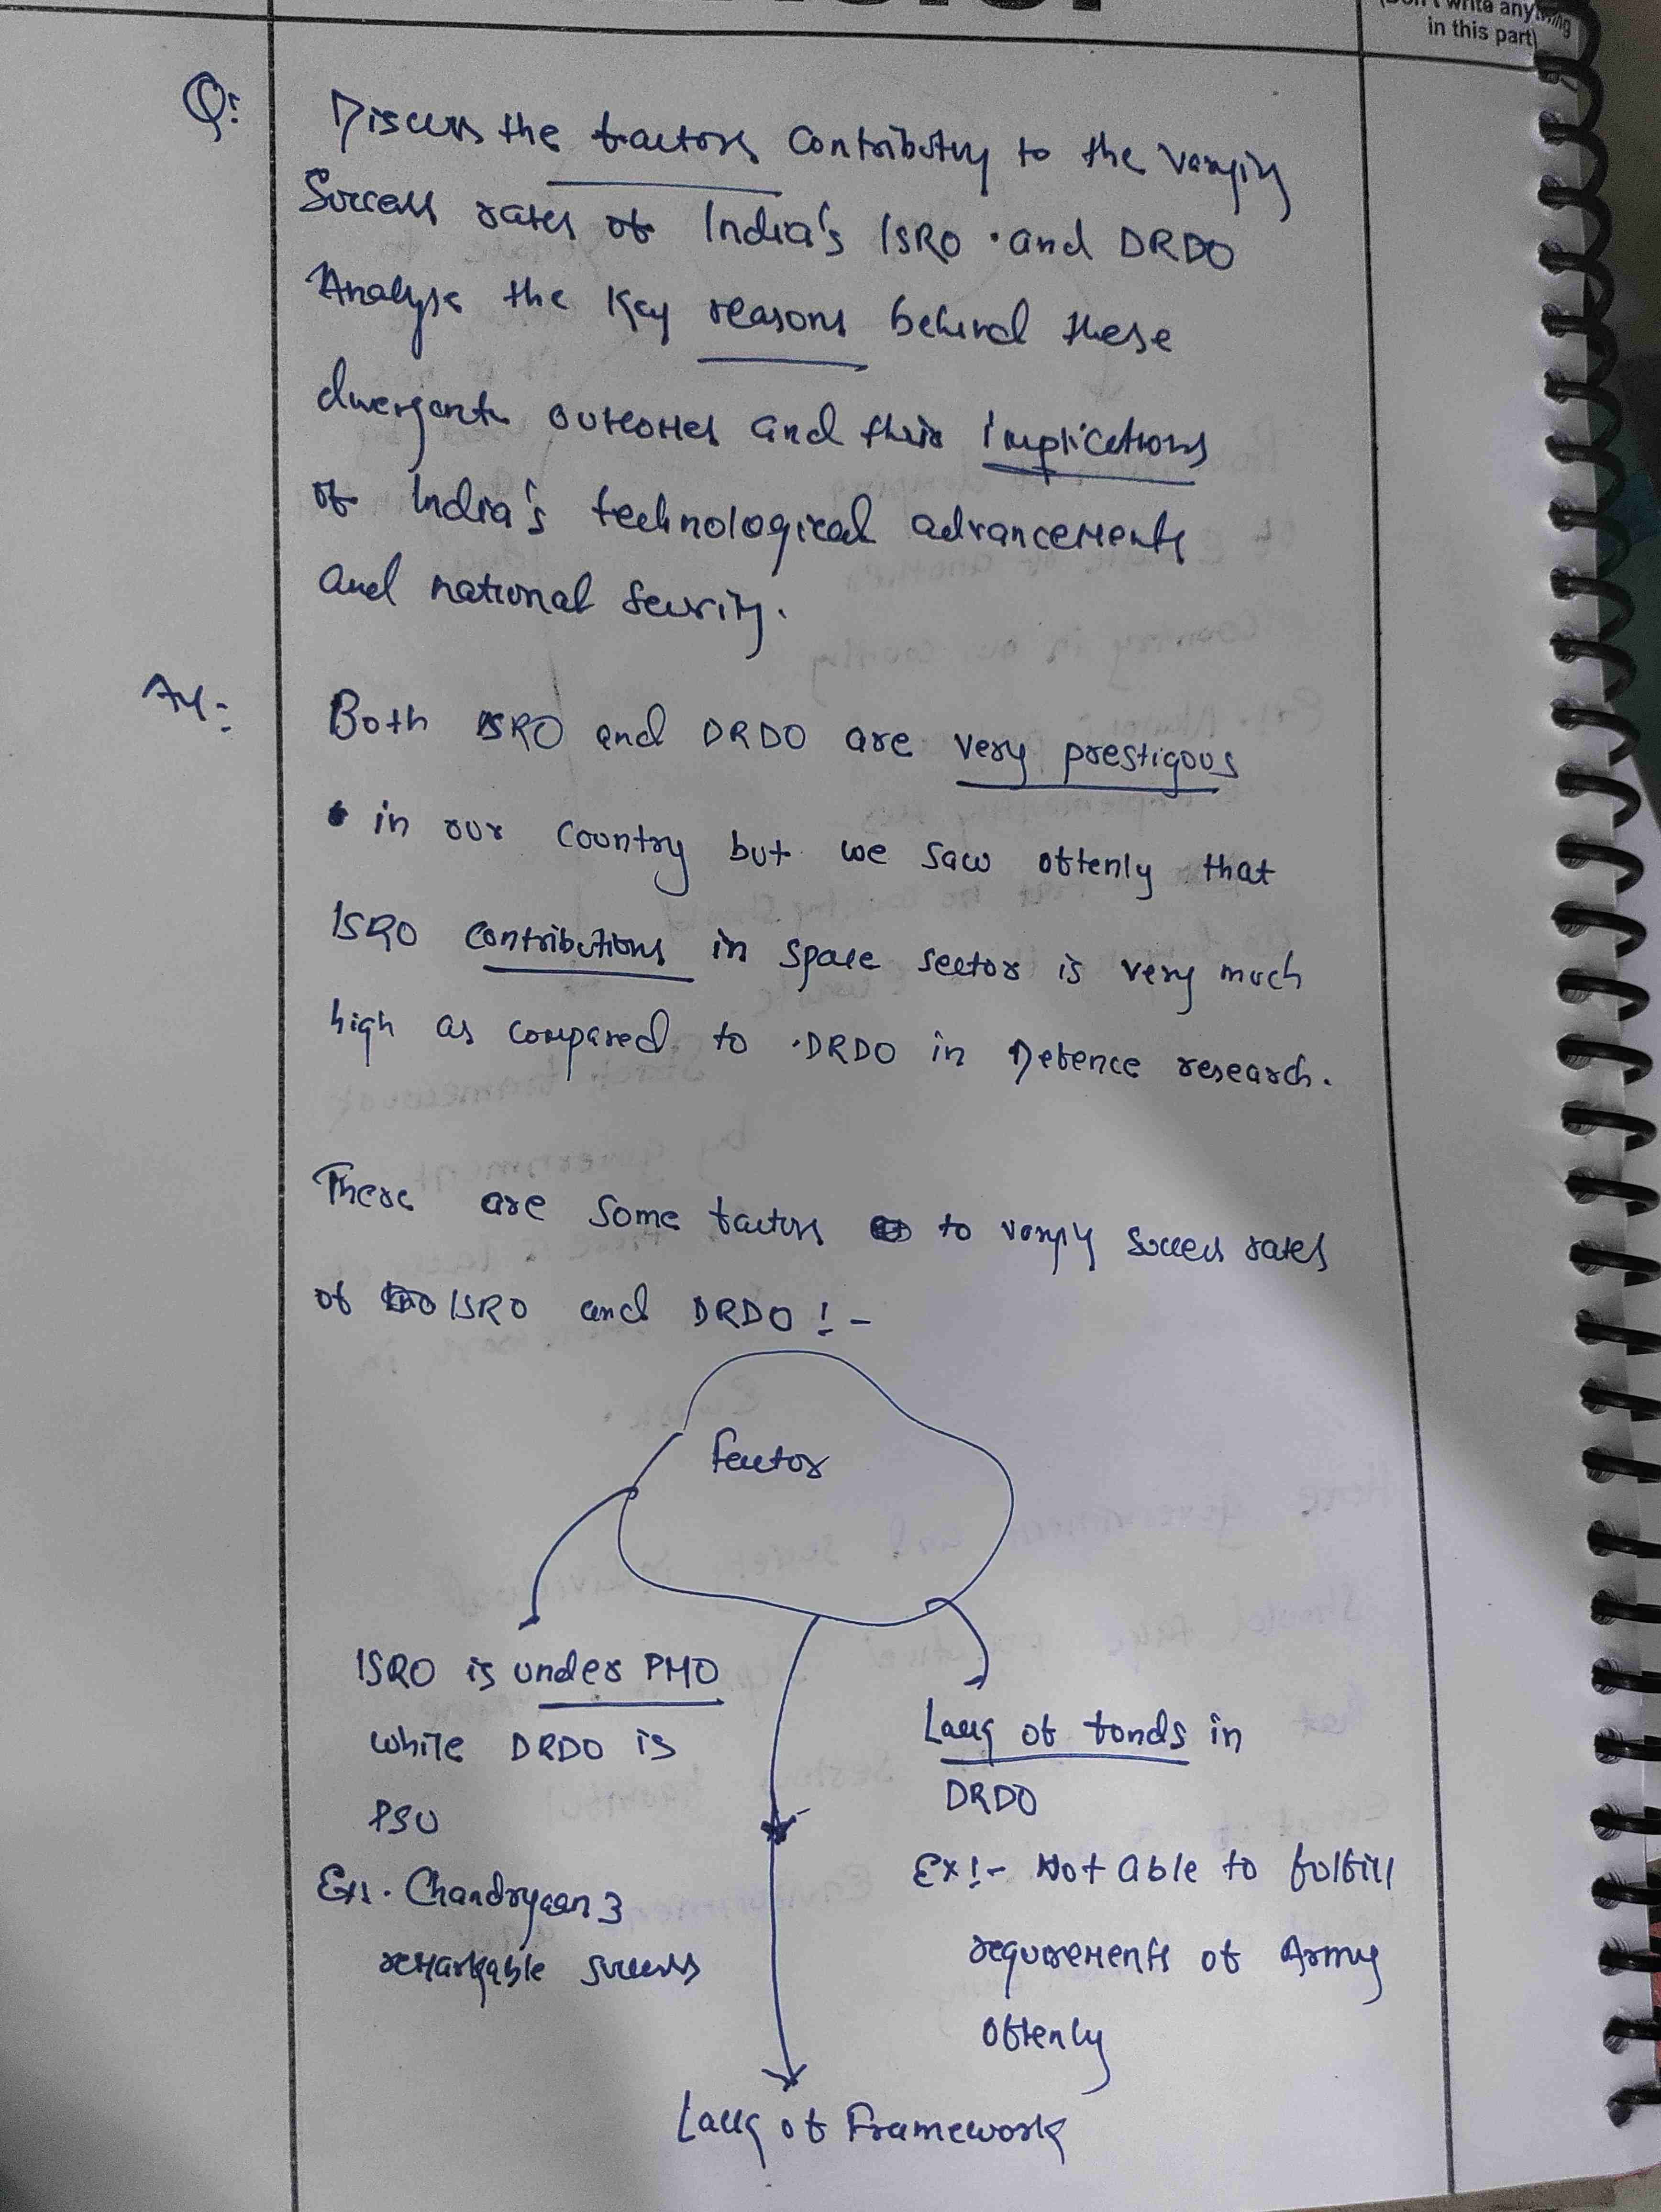 (Don't write anything
in this part)
Q:
Discuss the factors contributing to the varying
Success rates of India's ISRO and DRDO
Analyse the key reasons behind these
divergent outcomes and their implications
of India's technological advancements
and national security.
Both ISRO and DRDO are very prestigous
in our country but we saw oftenly that
ISRO contributions in space sector is very much
high as compared to DRDO in Defence research.
There are some factors to varyiy success rates
of ISRO and DRDO :-
factor
ISRO is under PMO
while DRDO is
PSU
Ex. Chandryaan 3
remarkable success
Lack of fonds in
DRDO
Ex:- Not able to fulfill
requirements of Army
oftenly
Lack of Framework